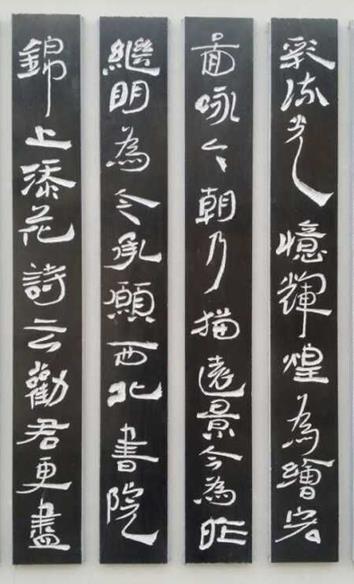 彩流光憶輝煌為繪宏
啚咏今朝乃描遠景今為昨
繼明為今承願西北書院
錦上添花詩云勸君更盡